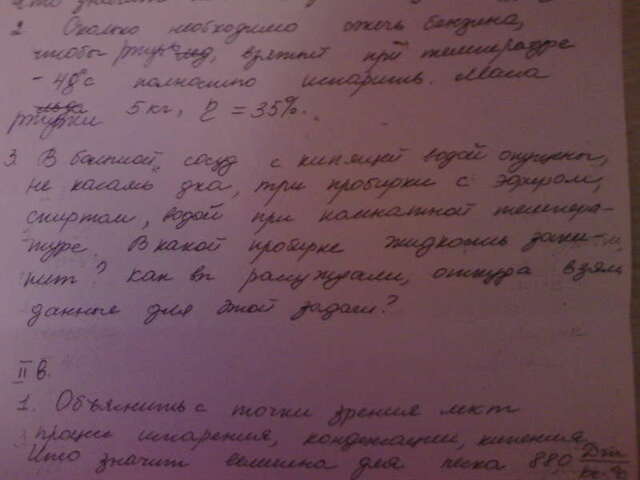 2. Сколько необходимо сжечь бензина,
чтобы ртуть, взятый при температуре
-48°с полностью испарить. Масса
ртути 5 кг, η = 35%.
3. В большой сосуд с кипящей водой опущены,
не касаясь дна, три пробирки с эфиром,
спиртом, водой при комнатной темпера-
туре. В какой пробирке жидкость заки-
пит? Как вы рассуждали, откуда взяли
данные для этой задачи?
II в.
1. Объяснить с точки зрения мкт
процесс испарения, конденсации, кипения.
Что значит величина для песка 880 Дж/кг·°С